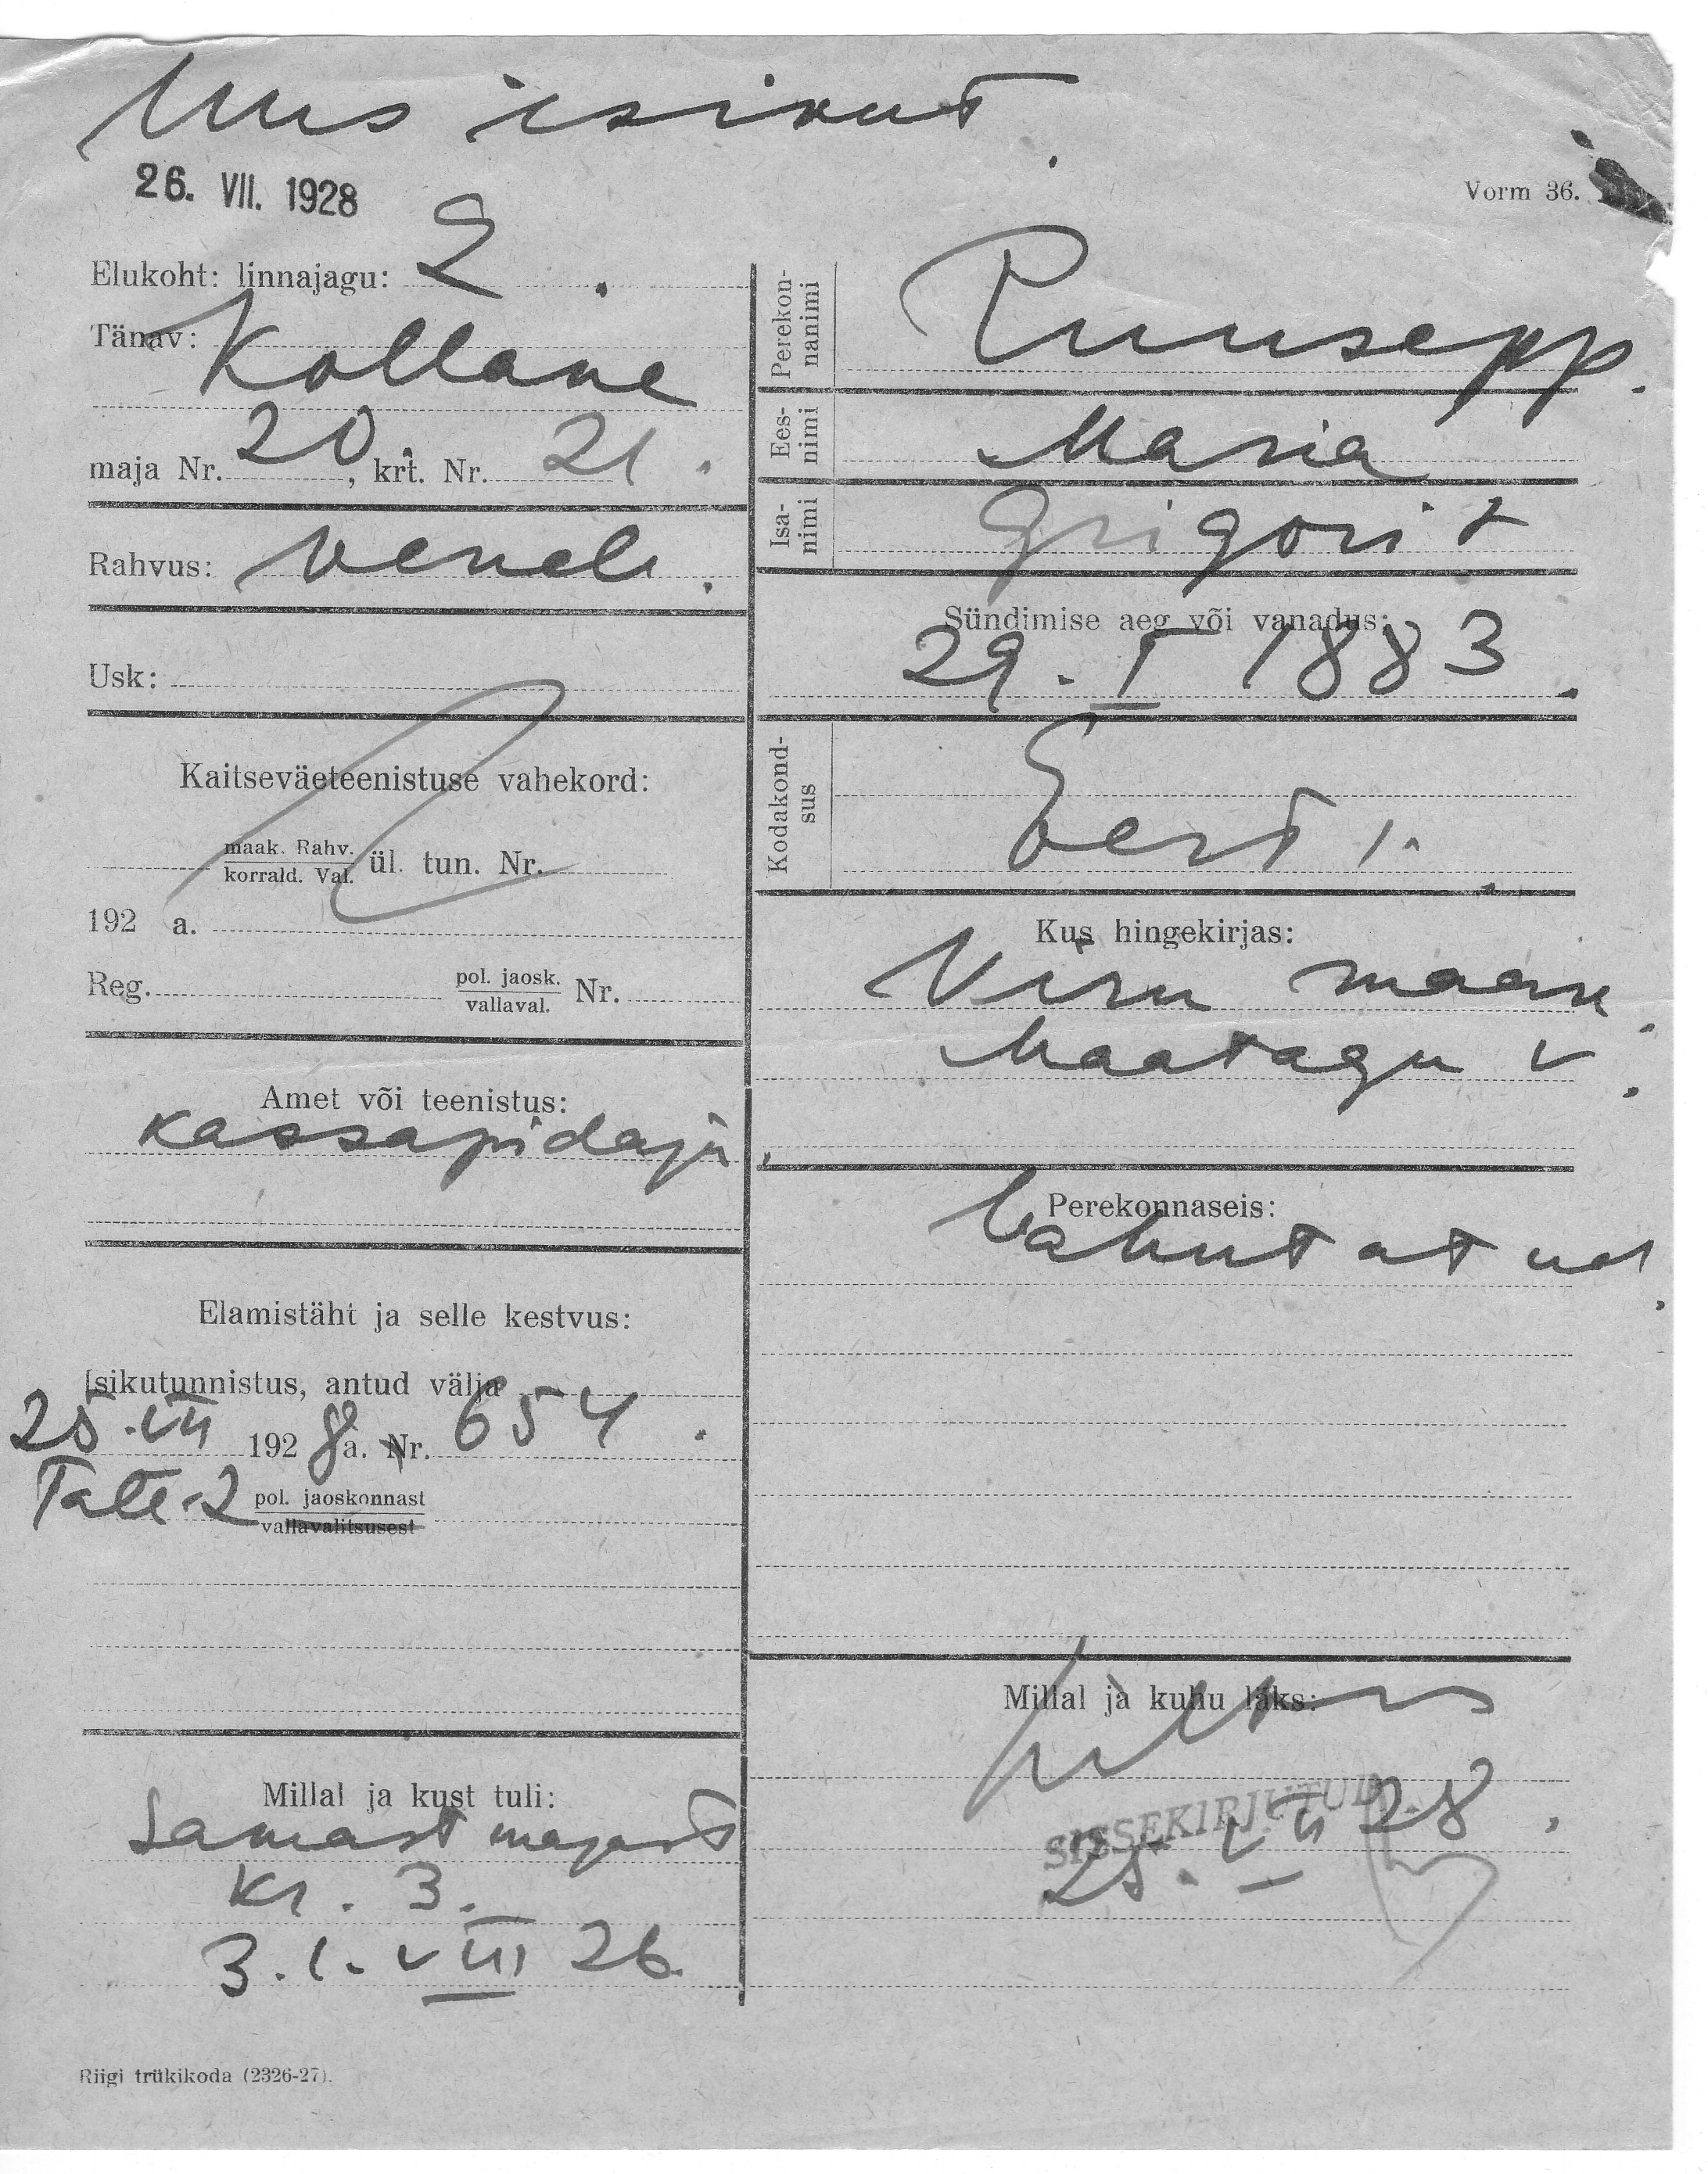 Uus isikut.
26. VII. 1928
Vorm 36.
Elukoht: linnajagu: 2.
Tänav: Kollane
maja Nr. 20, krt. Nr. 21.
Rahvus: venel.
Usk:
Kaitseväeteenistuse vahekord:
maak. Rahv. korrald. Val. ül. tun. Nr.
192 a.
Reg. pol. jaosk. vallaval. Nr.
Amet või teenistus:
kassapidaja.
Elamistäht ja selle kestvus:
Isikutunnistus, antud välja
25. VII 1928 a. Nr. 654.
2 pol. jaoskonnast
vallavalitsusest
Millal ja kust tuli:
Samast majast
kr. 3.
VIII 26.
Perekonnanimi Puusepp.
Eesnimi Maria
Isanimi Grigori t
Sündimise aeg või vanadus:
29. I 1883.
Kodakondsus Eesti.
Kus hingekirjas:
Viru maak.
Maetagu v.
Perekonnaseis:
Lahutatud.
Millal ja kuhu läks:
SISSEKIRJUTUD
25. VII 28.
Riigi trükikoda (2326-27).